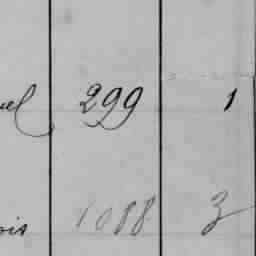 uel 299 1
ois 1088 3